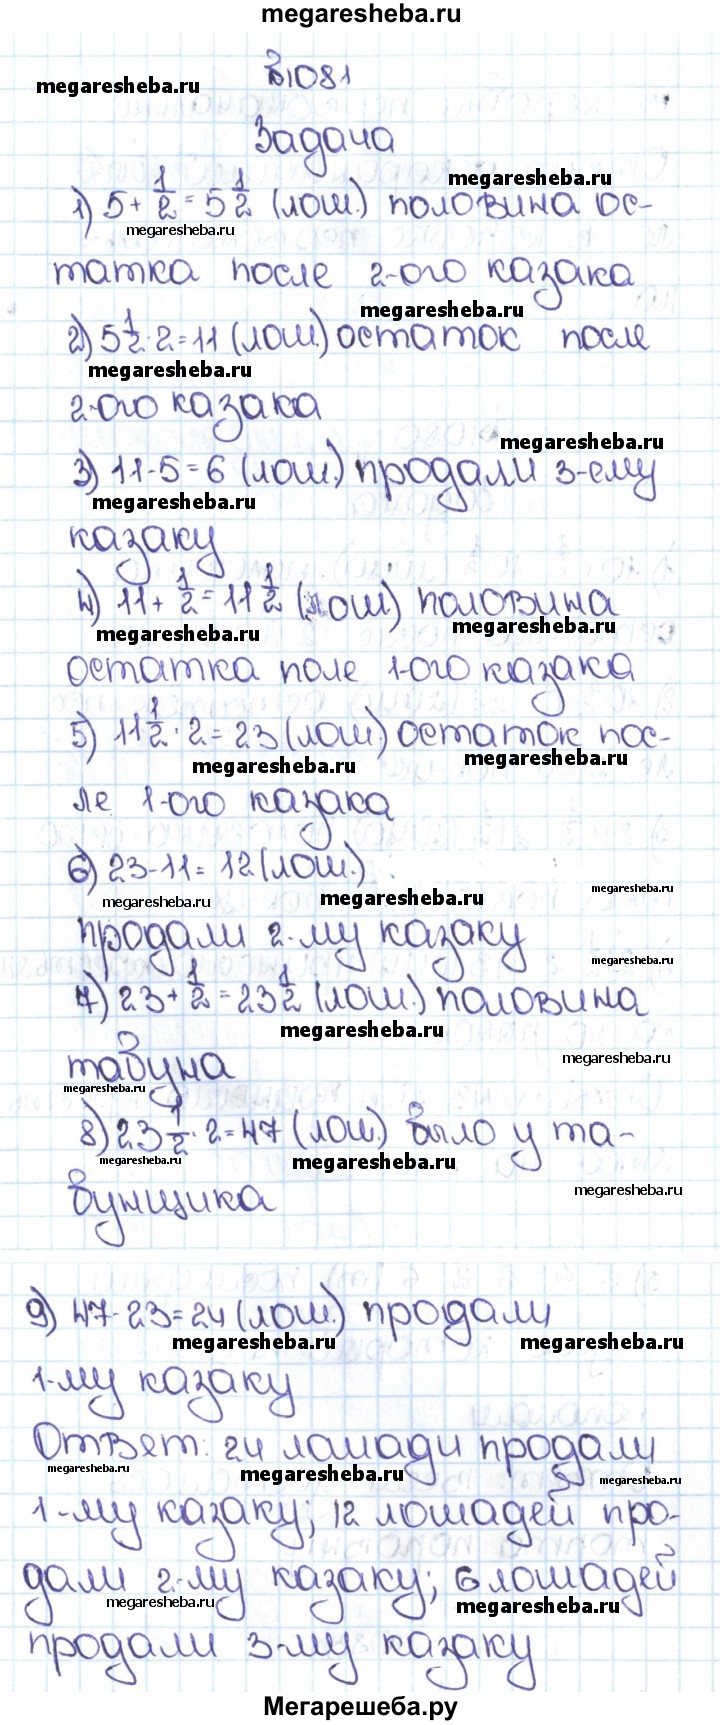 megaresheba.ru
№1081
megaresheba.ru
Задача
megaresheba.ru
1) 5 + 1/2 = 5 1/2 (лош.) половина ос-
megaresheba.ru
татка после 2-ого казака
megaresheba.ru
2) 5 1/2 · 2 = 11 (лош.) остаток после
megaresheba.ru
2-ого казака
megaresheba.ru
3) 11 - 5 = 6 (лош.) продали 3-ему
megaresheba.ru
казаку
4) 11 + 1/2 = 11 1/2 (лош) половина
megaresheba.ru megaresheba.ru
остатка поле 1-ого казака
5) 11 1/2 · 2 = 23 (лош.) остаток пос-
megaresheba.ru megaresheba.ru
ле 1-ого казака
6) 23 - 11 = 12 (лош.)
megaresheba.ru megaresheba.ru megaresheba.ru
продали 2-му казаку
megaresheba.ru
7) 23 + 1/2 = 23 1/2 (лош.) половина
megaresheba.ru
табуна
megaresheba.ru
megaresheba.ru
8) 23 1/2 · 2 = 47 (лош.) было у та-
megaresheba.ru megaresheba.ru
бунщика
megaresheba.ru
9) 47 - 23 = 24 (лош.) продали
megaresheba.ru megaresheba.ru
1-му казаку
Ответ: 24 лошади продали
megaresheba.ru megaresheba.ru megaresheba.ru
1-му казаку; 12 лошадей про-
дали 2-му казаку; 6 лошадей
megaresheba.ru megaresheba.ru
продали 3-му казаку
Мегарешеба.ру